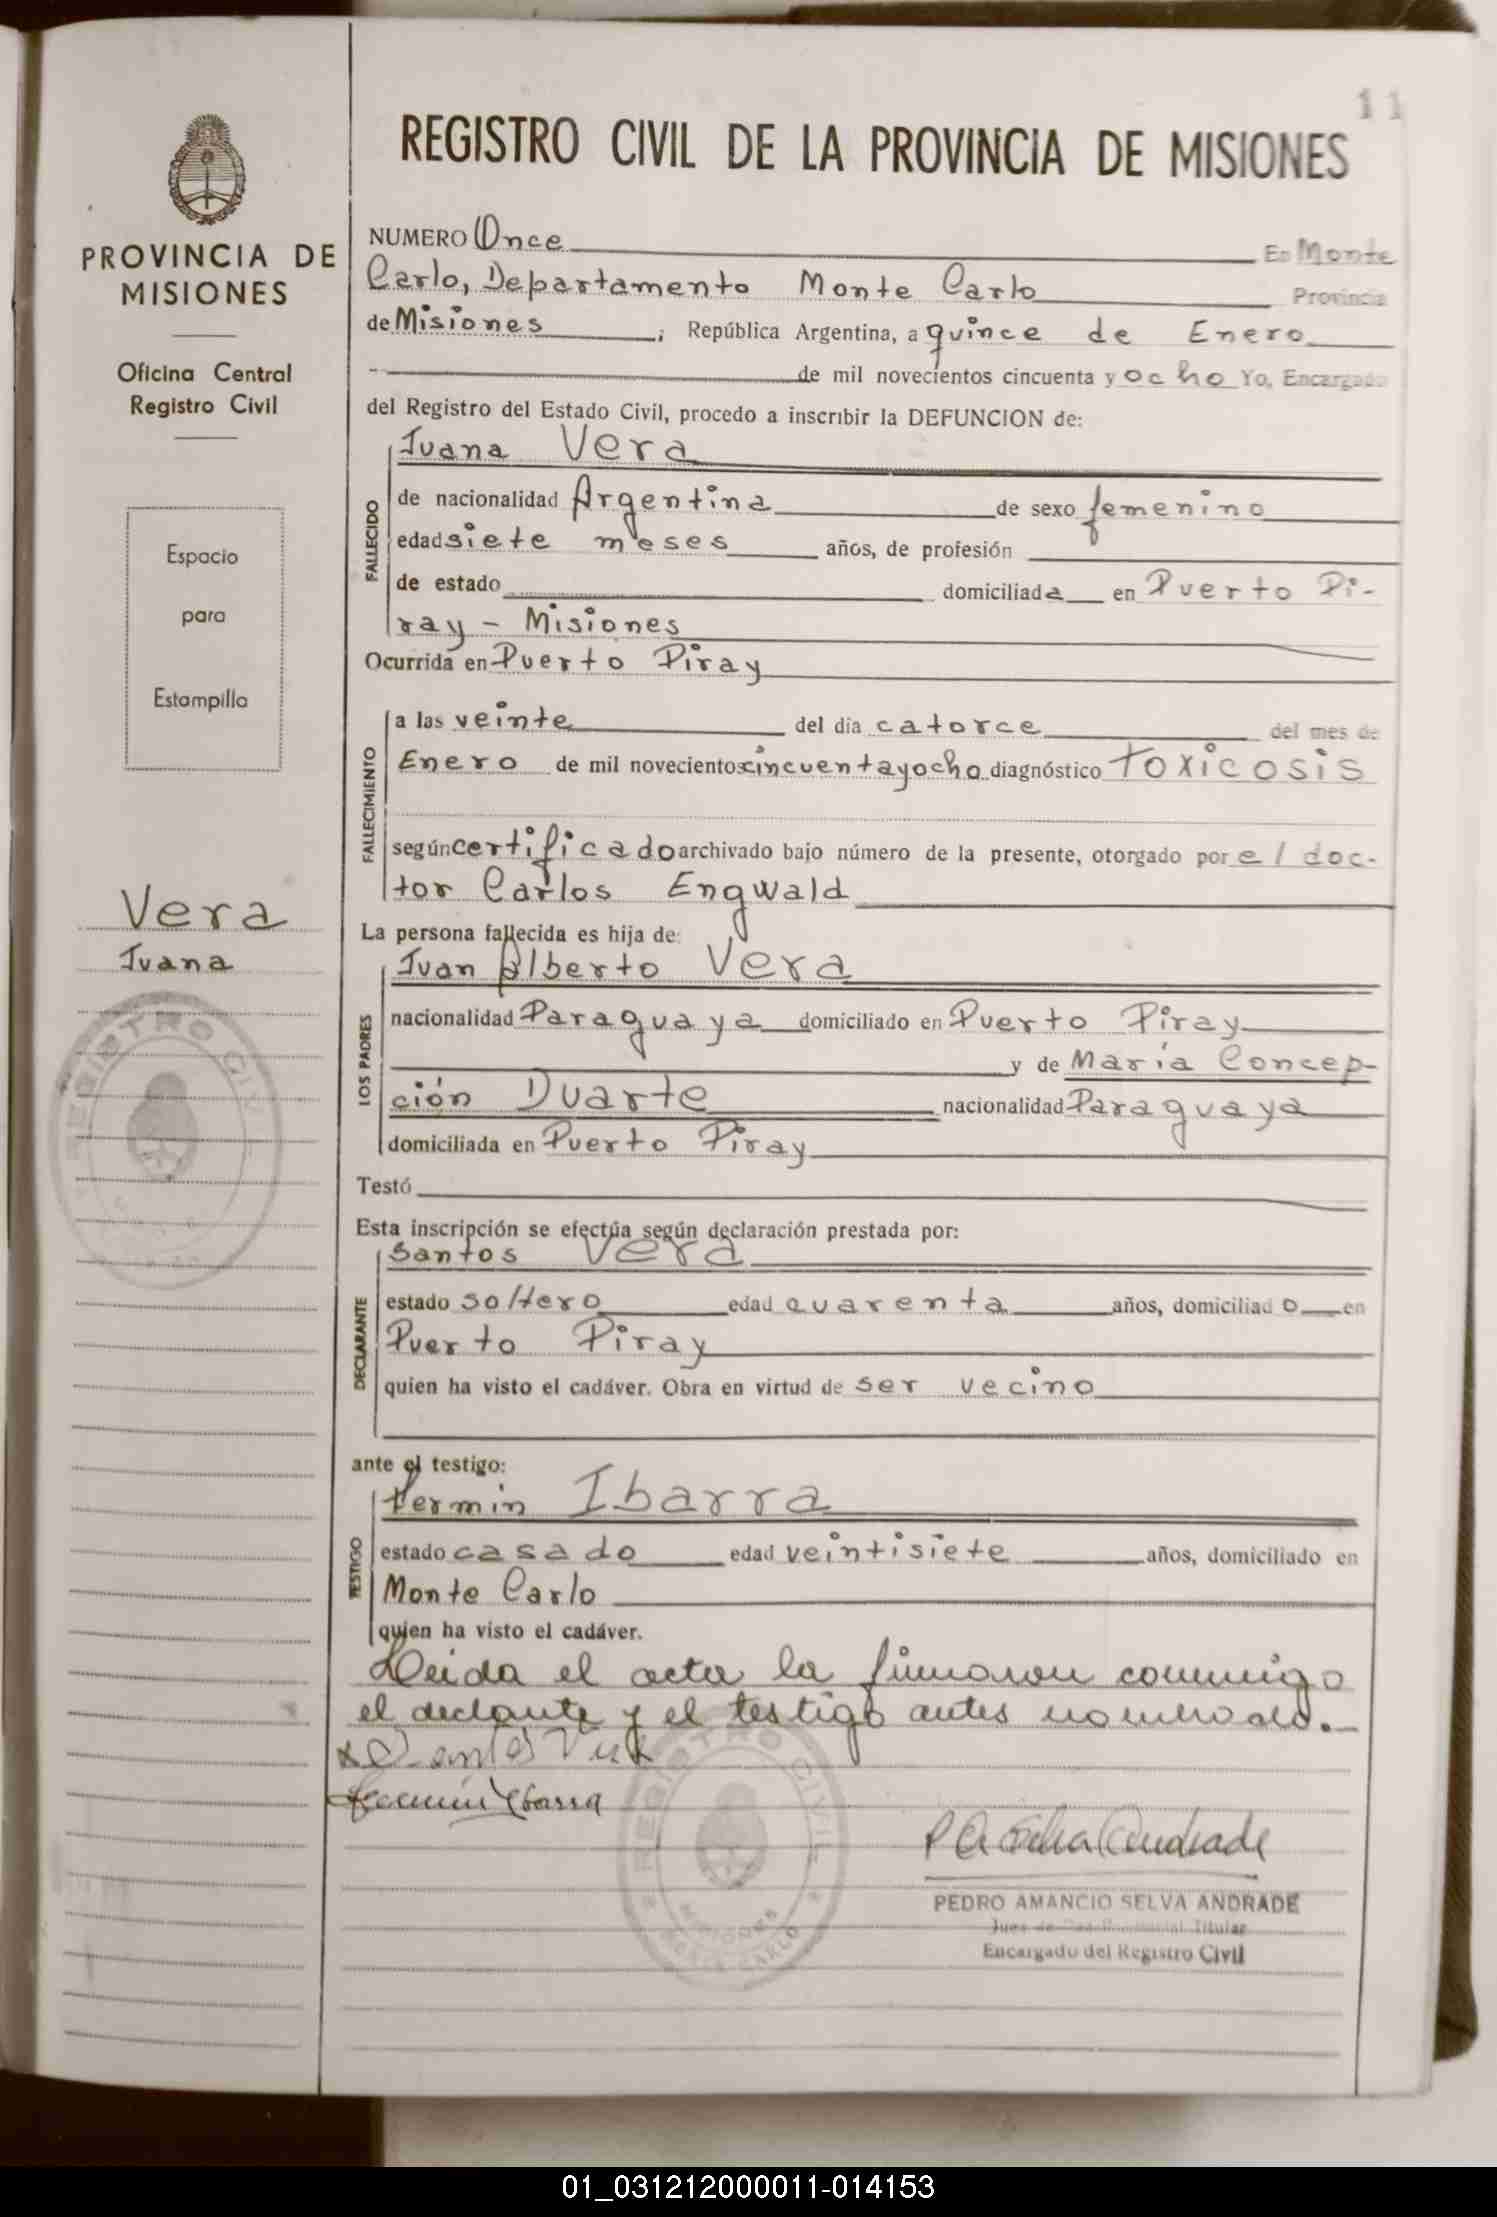 11
REGISTRO CIVIL DE LA PROVINCIA DE MISIONES
PROVINCIA DE
MISIONES
Oficina Central
Registro Civil
Espacio
para
Estampilla
Vera
Juana
NUMERO Once En Monte
Carlo, Departamento Monte Carlo Provincia
de Misiones ; República Argentina, a quince de Enero
de mil novecientos cincuenta y ocho Yo, Encargado
del Registro del Estado Civil, procedo a inscribir la DEFUNCION de:
Juana Vera
FALLECIDO
de nacionalidad Argentina de sexo femenino
edad siete meses años, de profesión
de estado domiciliada en Puerto Pi-
ray - Misiones
Ocurrida en Puerto Piray
FALLECIMIENTO
a las veinte del día catorce del mes de
Enero de mil novecientos cincuentayocho diagnóstico Toxicosis
según certificado archivado bajo número de la presente, otorgado por el doc-
tor Carlos Engwald
La persona fallecida es hija de:
LOS PADRES
Juan Alberto Vera
nacionalidad Paraguaya domiciliado en Puerto Piray
y de María Concep-
ción Duarte nacionalidad Paraguaya
domiciliada en Puerto Piray
Testó
Esta inscripción se efectúa según declaración prestada por:
DECLARANTE
Santos Vera
estado soltero edad cuarenta años, domiciliado en
Puerto Piray
quien ha visto el cadáver. Obra en virtud de ser vecino
ante el testigo:
TESTIGO
Fermin Ibarra
estado casado edad veintisiete años, domiciliado en
Monte Carlo
quien ha visto el cadáver.
Leida el acta la firmaron conmigo
el declante y el testigo antes nombrado.
x Santos Vera
Fermin Ibarra
REGISTRO CIVIL
MISIONES
MONTE CARLO
P A Selva Andrade
PEDRO AMANCIO SELVA ANDRADE
Juez de Paz Titular
Encargado del Registro Civil
REGISTRO CIVIL
01_031212000011-014153